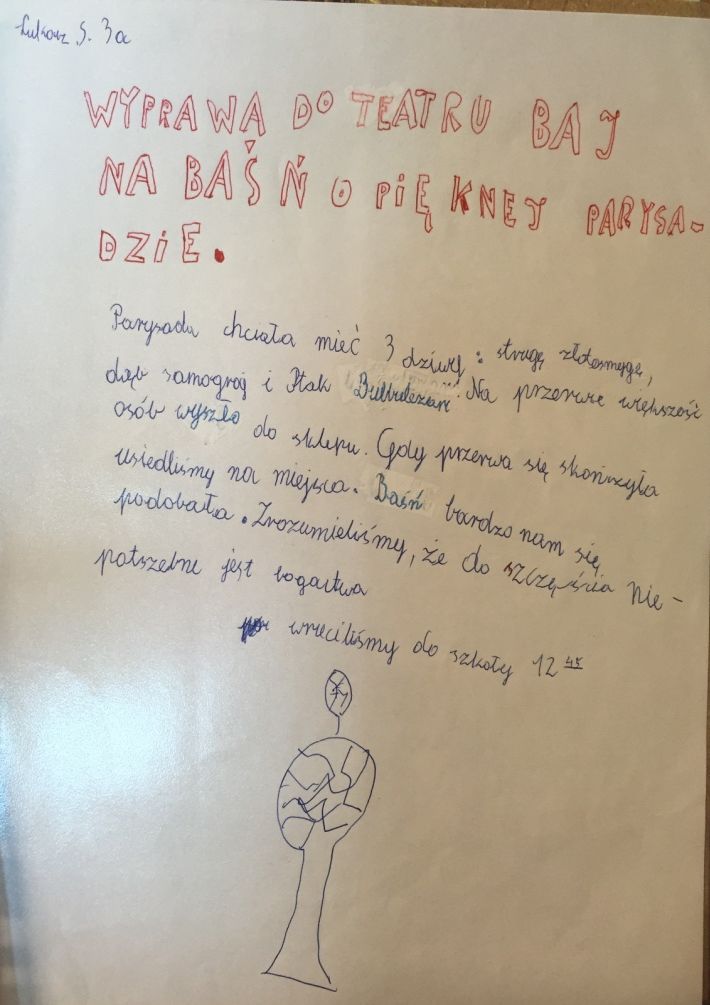 Łukasz S. 3a
WYPRAWA DO TEATRU BAJ
NA BAŚŃ O PIĘKNEJ PARYSA-
DZIE.
Parysada chciała mieć 3 dziwy: strugę złotosmugę,
dąb samograj i Ptak Bulbulezar. Na przerwie większość
osób wyszło do sklepu. Gdy przerwa się skończyła
usiedliśmy na miejsca. Baśń bardzo nam się
podobała. Zrozumieliśmy, że do szczęścia nie-
potszebne jest bogactwa
wrócilismy do szkoły 12 45